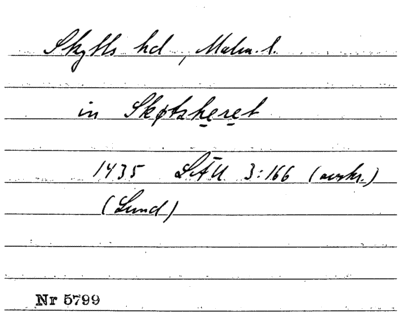 Skytts hd, Malm. l.
in Skøtzheret
1435 LÄU 3:166 (avskr.)
(Lund)
Nr 5799